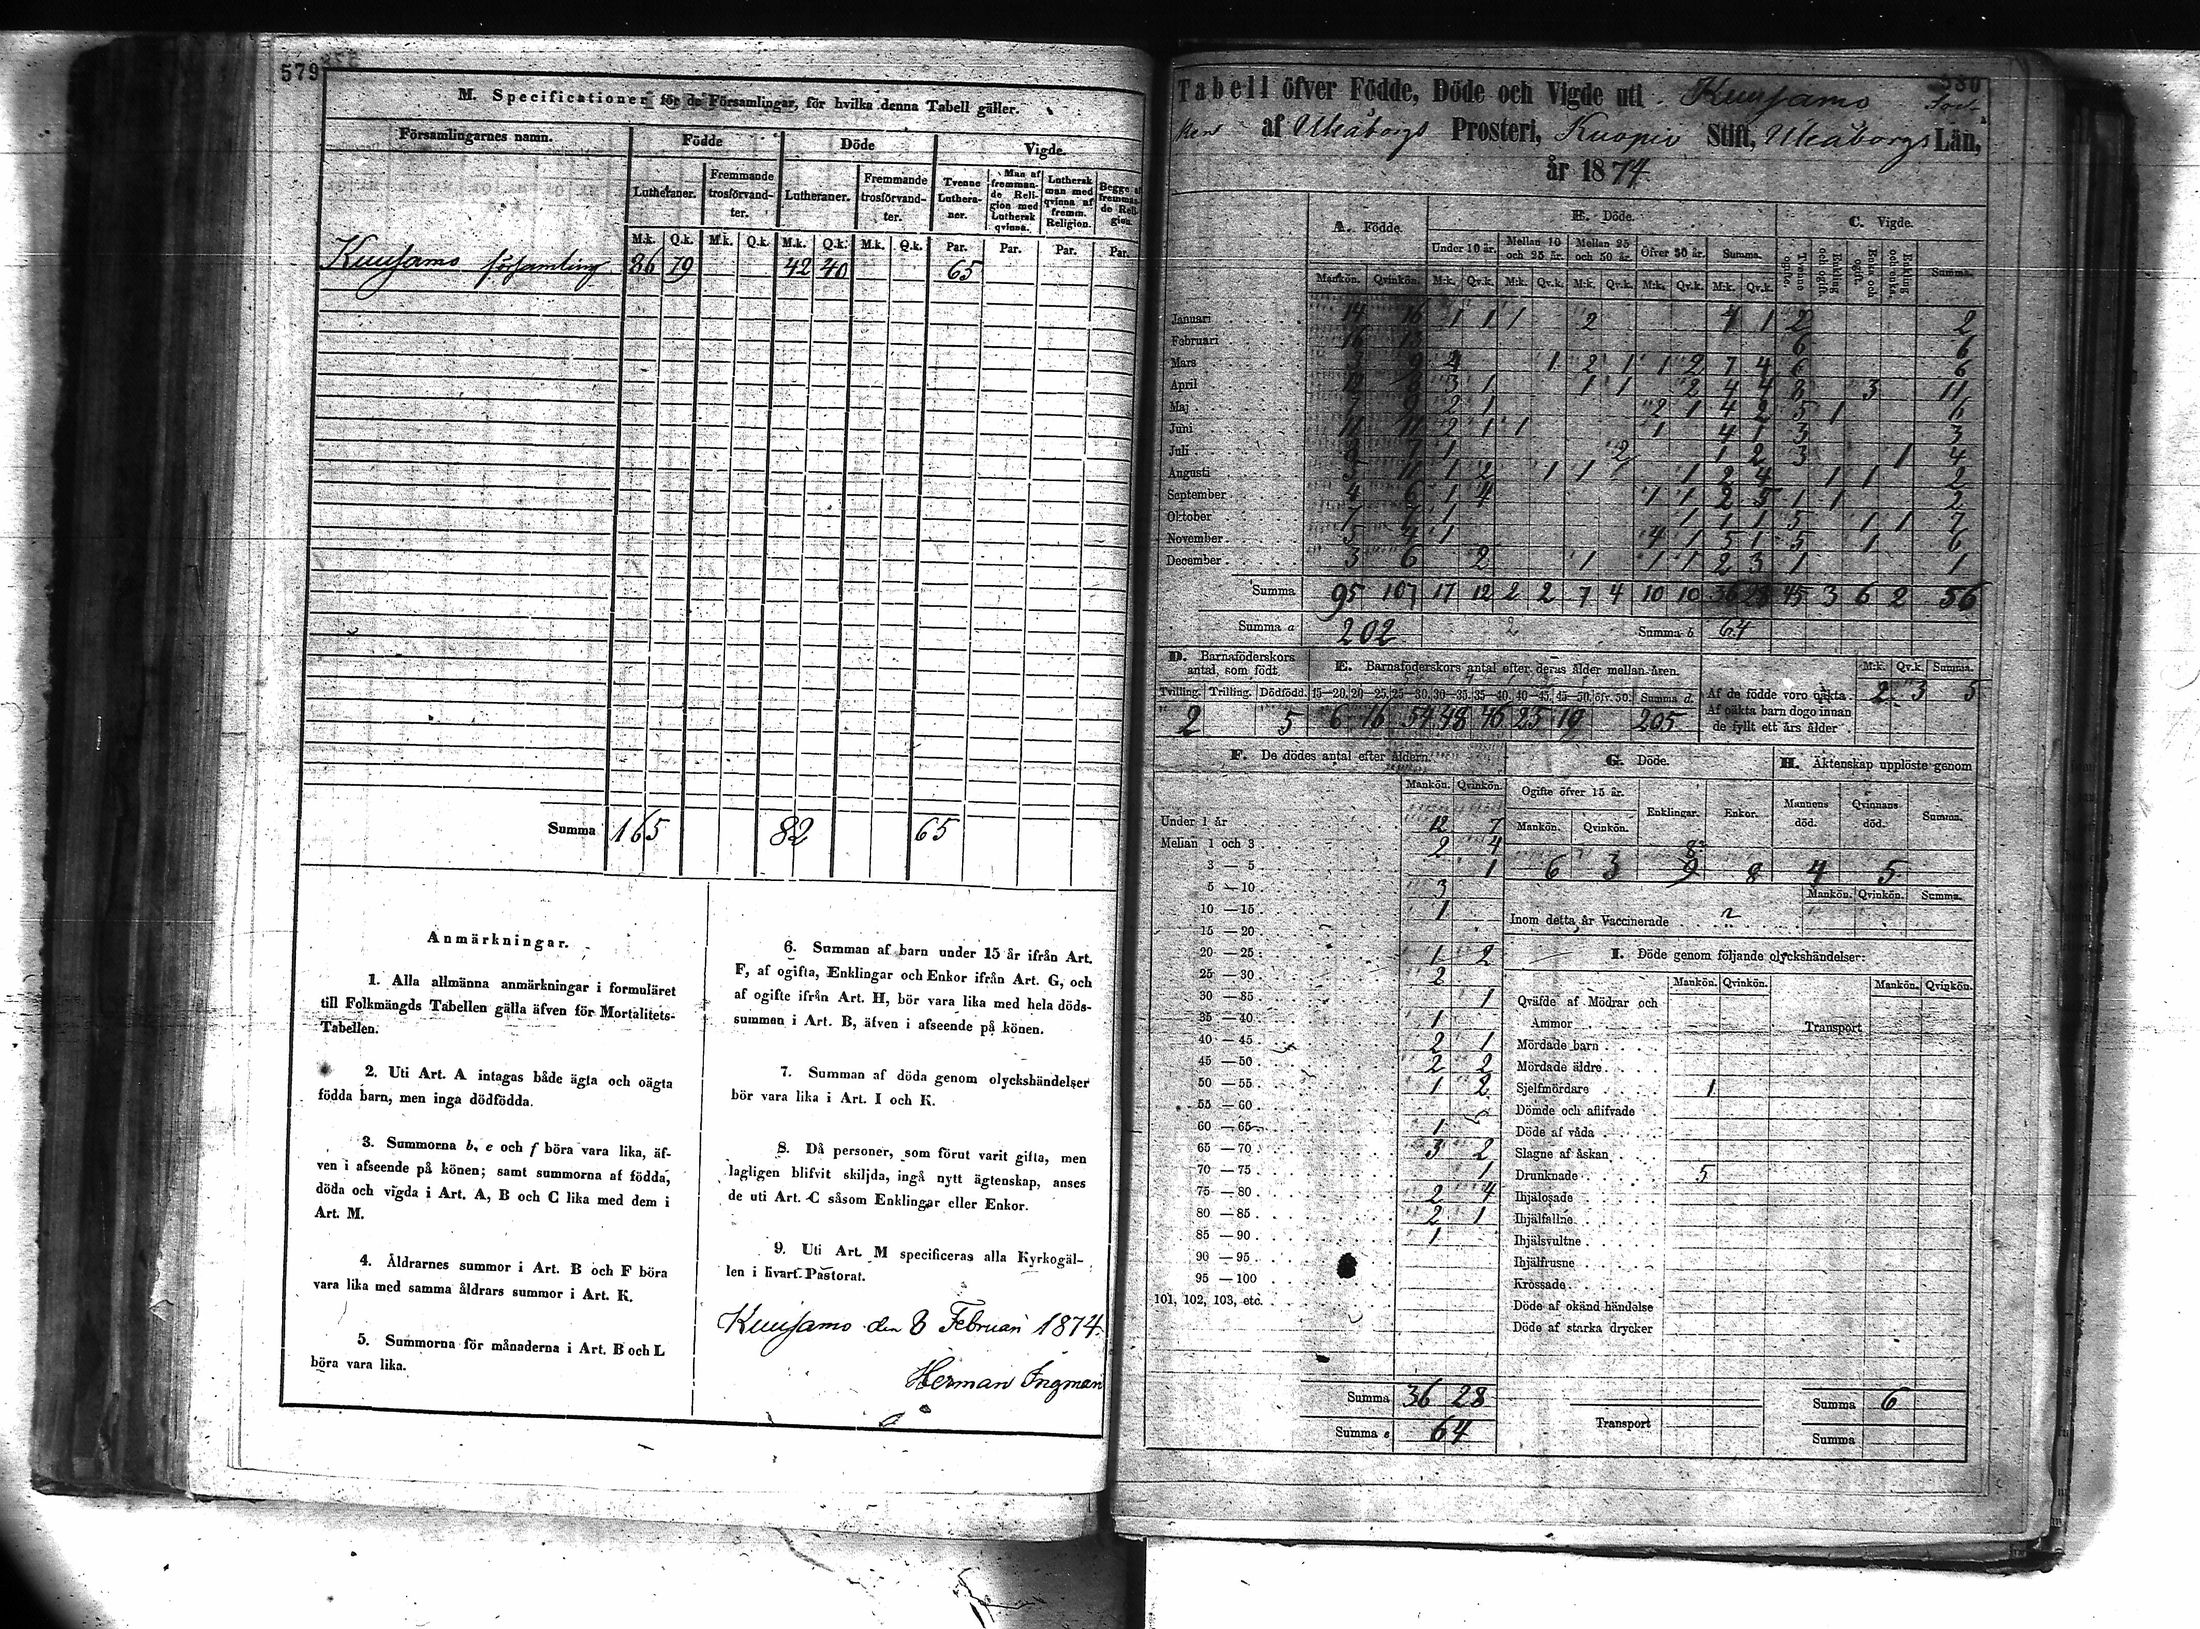 579
M. Specificationer för de Församlingar, för hvilka denna Tabell gäller.
Församlingarnes namn. Födde Döde Vigde.
Lutheraner. Fremmande trosförvandter. Lutheraner. Fremmande trosförvandter. Tvenne Lutheraner. Man af fremmande Religion med Luthersk qvinna. Luthersk man med qvinna af fremm. Religion. Begge af fremmande Religion.
M.k. Q.k. M.k. Q.k. M.k. Q.k. M.k. Q.k. Par. Par. Par. Par.
Kuusamo församling 86 79 42 40 65
Summa 165 82 65
Anmärkningar.
1. Alla allmänna anmärkningar i formuläret
till Folkmängds Tabellen gälla äfven för Mortalitets-
Tabellen.
2. Uti Art. A intagas både ägta och oägta
födda barn, men inga dödfödda.
3. Summorna b, e och f böra vara lika, äf-
ven i afseende på könen; samt summorna af födda,
döda och vigda i Art. A, B och C lika med dem i
Art. M.
4. Åldrarnes summor i Art. B och F böra
vara lika med samma åldrars summor i Art. K.
5. Summorna för månaderna i Art. B och L
böra vara lika.
6. Summan af barn under 15 år ifrån Art.
F, af ogifta, Enklingar och Enkor ifrån Art. G, och
af ogifte ifrån Art. H, bör vara lika med hela döds-
summan i Art. B, äfven i afseende på könen.
7. Summan af döda genom olyckshändelser
bör vara lika i Art. I och K.
8. Då personer, som förut varit gifta, men
lagligen blifvit skiljda, ingå nytt ägtenskap, anses
de uti Art. C såsom Enklingar eller Enkor.
9. Uti Art. M specificeras alla Kyrkogäl-
len i hvart Pastorat.
Kuusamo den 8 Februari 1874.
Herman Ingman
580
Tabell öfver Födde, Döde och Vigde uti Kuusamo Sock
nen af Uleåborgs Prosteri, Kuopio Stift, Uleåborgs Län,
år 1874.
A. Födde. B. Döde. C. Vigde.
Under 10 år. Mellan 10 och 25 år. Mellan 25 och 50 år. Öfver 50 år. Summa. Tvenne ogifte. Enkling och ogift. Enka och ogift. Enkling och enka. Summa.
Mankön. Qvinkön. M:k. Qv.k. M:k. Qv.k. M:k. Qv.k. M:k. Qv.k. M:k. Qv.k.
Januari 14 16 1 1 1 2 4 1 2 2
Februari 16 13 6 6
Mars 9 4 1 2 1 1 2 7 4 6 6
April 3 1 1 1 2 4 4 8 3 11
Maj 7 9 2 1 2 1 4 2 5 1 6
Juni 11 11 2 1 1 1 4 1 3 3
Juli 7 1 2 1 2 3 1 4
Augusti 11 1 2 1 1 1 2 4 1 1 2
September 4 6 1 4 1 1 2 5 1 1 2
Oktober 7 7 1 1 1 1 5 1 1 7
November 4 1 4 1 5 1 5 1 6
December 3 6 2 1 1 1 2 3 1 1
Summa 95 107 17 12 2 2 7 4 10 10 36 28 45 3 6 2 56
Summa a 202 Summa b 64
D. Barnaföderskors antal, som födt
E. Barnaföderskors antal efter deras ålder mellan åren.
M:k. Qv.k. Summa.
Tvilling. Trilling. Dödfödd. 15—20. 20—25. 25—30. 30—35. 35—40. 40—45. 45—50. öfv. 50. Summa d.
2 5 6 16 54 48 46 25 10 205
Af de födde voro oäkta 2 3 5
Af oäkta barn dogo innan
de fyllt ett års ålder
F. De dödes antal efter åldern.
Mankön. Qvinkön.
Under 1 år 12 7
Mellan 1 och 3 2 4
3 — 5 1
5 — 10 3
10 — 15 1
15 — 20
20 — 25 1 2
25 — 30 2
30 — 35 1
35 — 40 1
40 — 45 2 1
45 — 50 2 2
50 — 55 1 2
55 — 60
60 — 65 1
65 — 70 3 2
70 — 75 1
75 — 80 2 4
80 — 85 2 1
85 — 90 1
90 — 95
95 — 100
101, 102, 103, etc.
Summa 36 28
Summa e 64
G. Döde.
Ogifte öfver 15 år. Enklingar. Enkor.
Mankön. Qvinkön.
8
6 3 9 8
H. Äktenskap upplöste genom
Mannens död. Qvinnans död. Summa.
4 5
Mankön. Qvinkön. Summa.
Inom detta år Vaccinerade
I. Döde genom följande olyckshändelser:
Mankön. Qvinkön. Mankön. Qvinkön.
Qväfde af Mödrar och
Ammor Transport
Mördade barn
Mördade äldre
Sjelfmördare 1
Dömde och aflifvade
Döde af våda
Slagne af åskan
Drunknade 5
Ihjälosade
Ihjälfallne
Ihjälsvultne
Ihjälfrusne
Krossade
Döde af okänd händelse
Döde af starka drycker
Summa 6
Transport
Summa